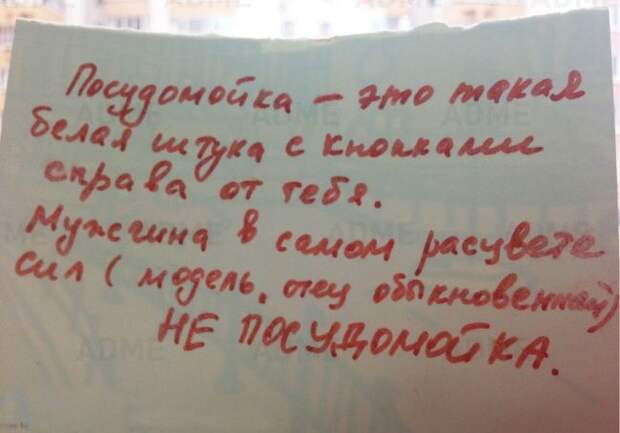 Посудомойка – это такая
белая штука с кнопками
справа от тебя.
Мужчина в самом расцвете
сил (модель, отец обыкновенный)
НЕ ПОСУДОМОЙКА.
ADME